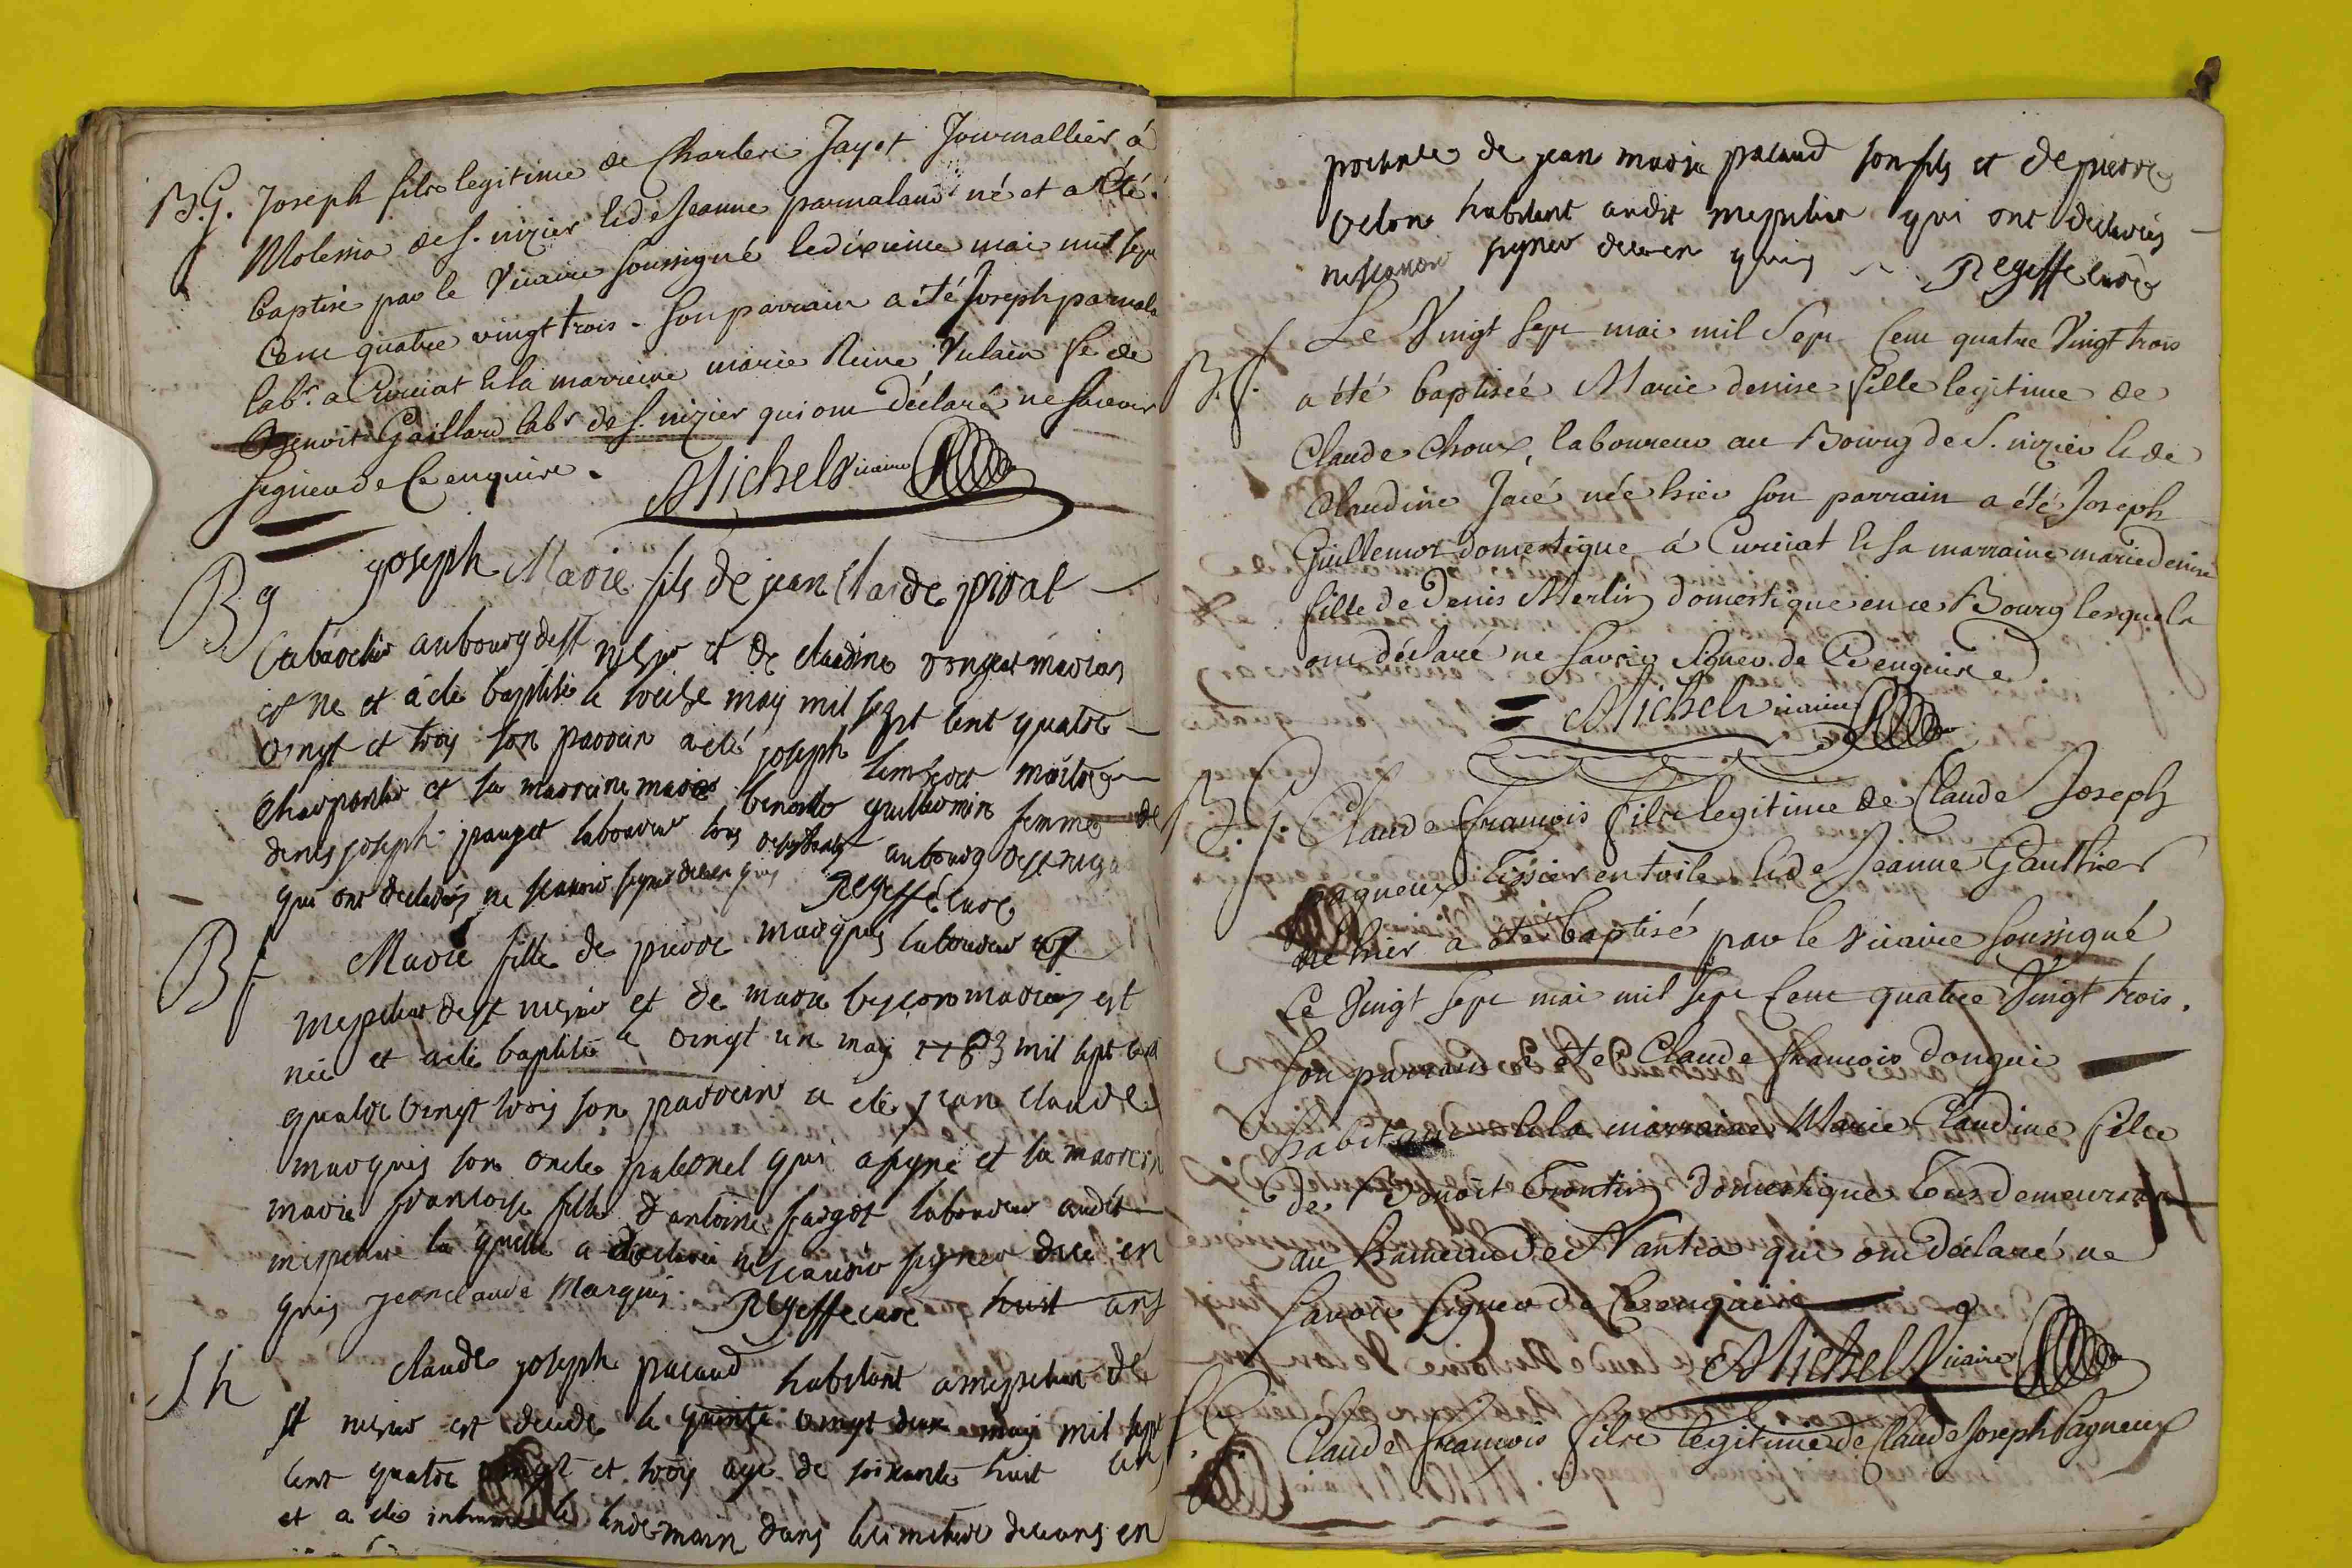 B.g. Joseph fils legitime de Charles Jayot Journallier à
Molema de S. nizier & de Jeanne parmaland né et a été
baptisé par le Vicaire soussigné le dixieme mai mil sept
cent quatre vingt trois. Son parrain a été Joseph parmala
labr. a Curciat & la marreine marie Reine Vulain fe de
Benoit Gaillard labr de S. nizier qui ont déclaré ne savoir
signer de ce enquire.
Michel Vicaire
Bg joseph Marie fils de jean Claude pivat
Cabartier au bourg de st nisier et de claudine vongeat mariés
est ne et a été baptisé le treize may mil sept cent quatre
vingt et trois son parrein a été joseph maitre
charpentier et sa marreine marie benoite guillermin femme de
denis joseph pauget laboureur tous au bourg de st
qui ont declarés ne scavoir signer de ce enquis Regeffe curé
Bf Marie fille de pierre marquis laboureur a
mepeliat de st nisier et de marie besson mariés est
née et a été baptisée le vingt un may 1783 mil sept cent
quatre vingt trois son parrein a été jean claude
marquis son oncle paternel qui a signé et sa marreine
marie francoise fille d'antoine fargot laboureur audit
mepeliat la quelle a declaree ne scavoir signer de ce en
quis jean claude Marquis Regeffe curé huit ans
Sh claude joseph pacaud habitant a mepeliat de
st nisier est decedé le quinse vingt deux may mil sept
cent quatre vingt et trois agé de soixante huit ans
et a été inhumé le lendemain dans le cimetiere de ceans en
presence de jean marie pacaud son fils et de pierre
velon habitant audit mepeliat qui ont declarés
ne scavoir signer de ce en quis Regeffe curé
B.f. Le Vingt sept mai mil Sept Cent quatre Vingt trois
a été baptiséé Marie denise fille legitime de
Claude Choux, laboureur au Bourg de S. nizier & de
Claudine Jacé née hier son parrain a été Joseph
Guillemot domestique à Curciat & sa marraine marie denise
fille de Denis Merlin domestique en ce Bourg lesquels
ont déclaré ne savoir signer de Ce enquire
Michel vicaire
B.g. Claude francois fils legitime de Claude Joseph
pagneux tissier en toile & de Jeanne Gauthier
né hier a été baptisé par le vicaire soussigné
Le Vingt sept mai mil sept Cent quatre Vingt trois.
Son parrain a été Claude francois Dongui
habitant & la marraine Marie Claudine fille
de Benoit Trontin domestique tous demeurans
au hameau de Nantra qui ont déclaré ne
savoir signer de Ce enquire
Michel Vicaire
S.g. Claude francois fils legitime de Claude Joseph Pagneux